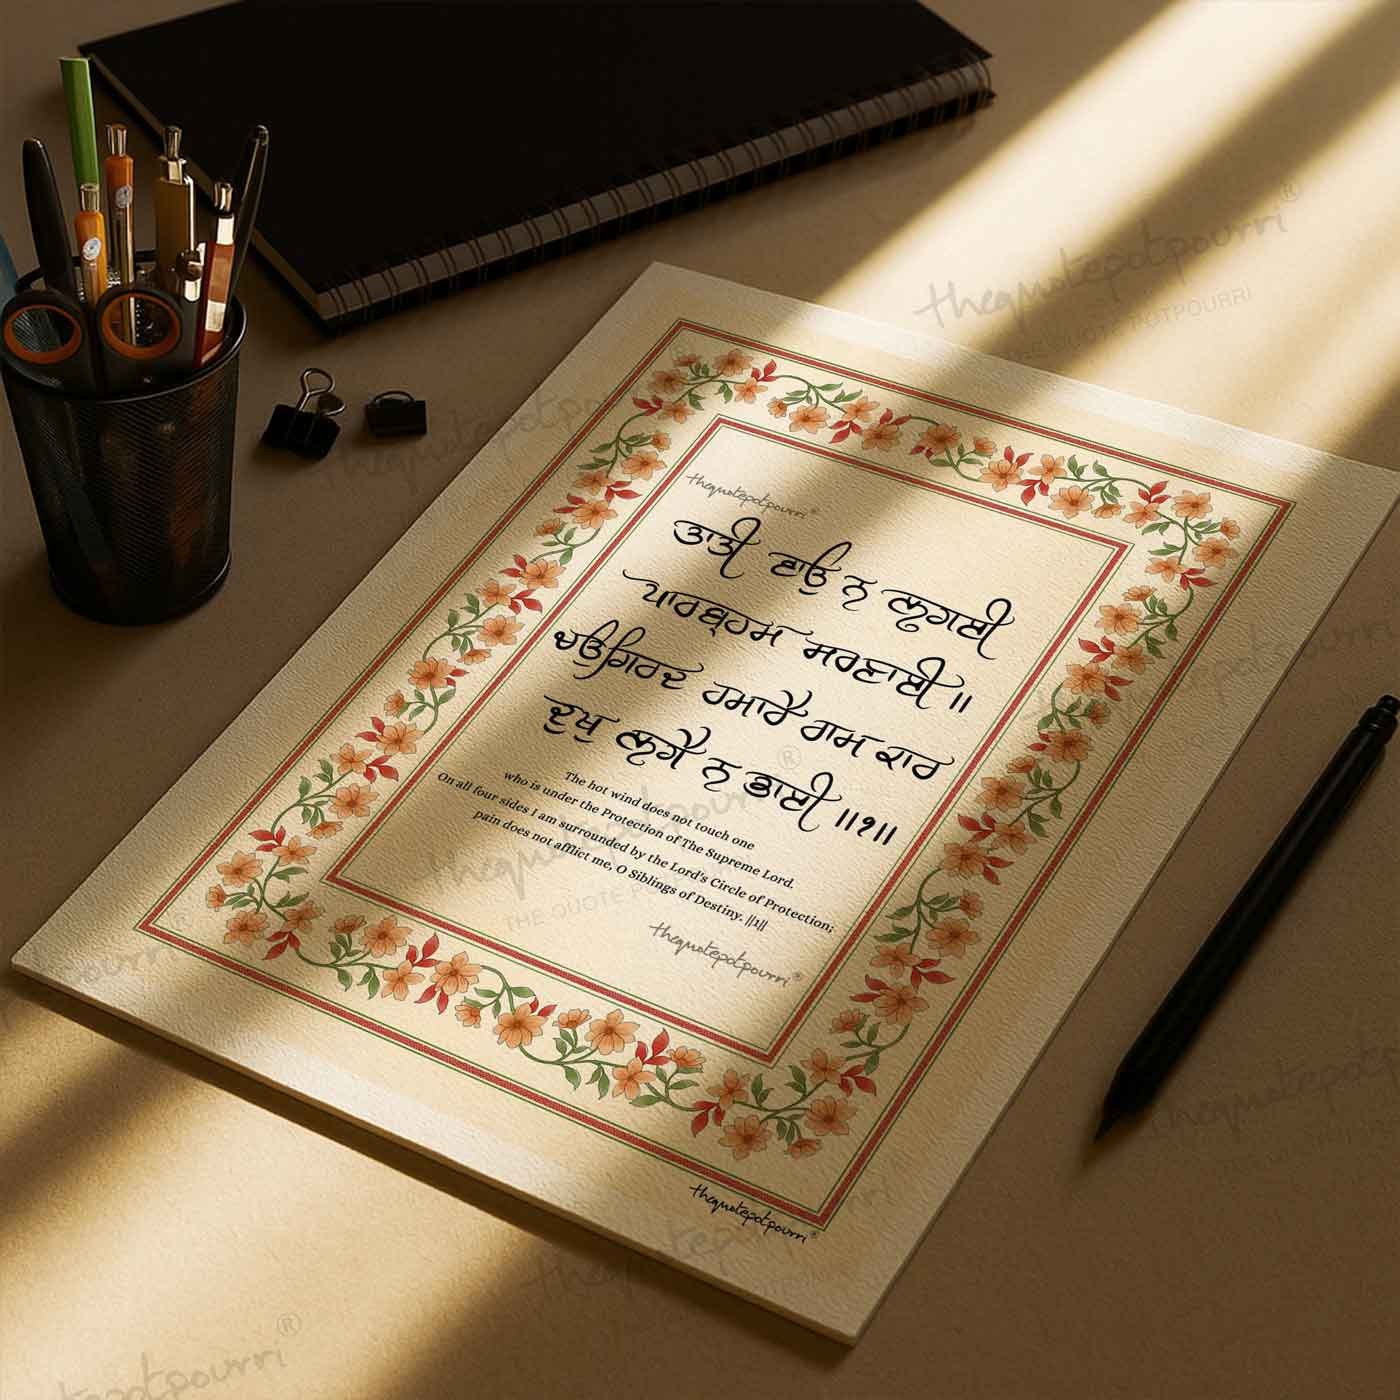 thequotepotpourri®
THE QUOTE POTPOURRI
thequotepotpourri®
ਤਾਤੀ ਵਾਉ ਨ ਲਗਈ
ਪਾਰਬ੍ਰਹਮ ਸਰਣਾਈ ॥
ਚਉਗਿਰਦ ਹਮਾਰੈ ਰਾਮ ਕਾਰ
ਦੁਖੁ ਲਗੈ ਨ ਭਾਈ ॥੧॥
The hot wind does not touch one
who is under the Protection of The Supreme Lord.
On all four sides I am surrounded by the Lord's Circle of Protection;
pain does not afflict me, O Siblings of Destiny. ||1||
thequotepotpourri®
thequotepotpourri®